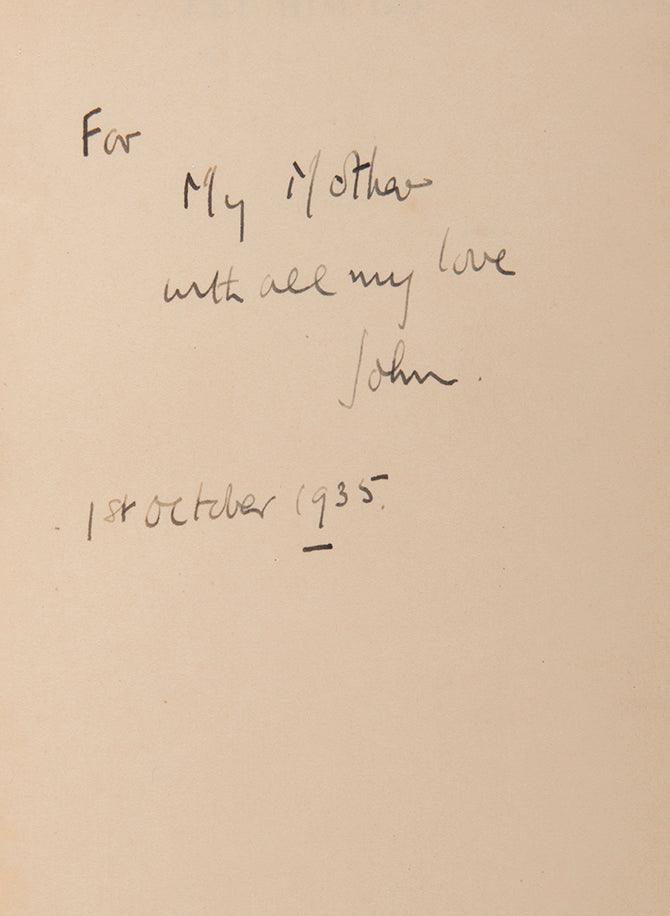 For
My Mother
with all my love
John.
1st October 1935.